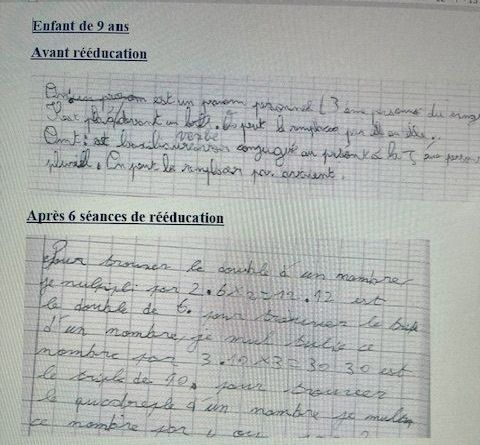 Enfant de 9 ans
Avant rééducation
est un pronom personnel 3 ème personne du
Il est placé devant un On peut le remplacer par il ou elle.
Ont : verbe conjugué au présent à la 3 ème
pluriel. On peut le remplacer par avaient.
Après 6 séances de rééducation
Pour trouver le double d'un nombre
je multipli par 2. 6x2=12. 12 est
le double de 6. pour trouver le triple
d'un nombre, je multiplie ce
nombre par 3. 10x3=30 30 est
le triple de 10. pour trouver
le quadruple d'un nombre je
ce nombre par